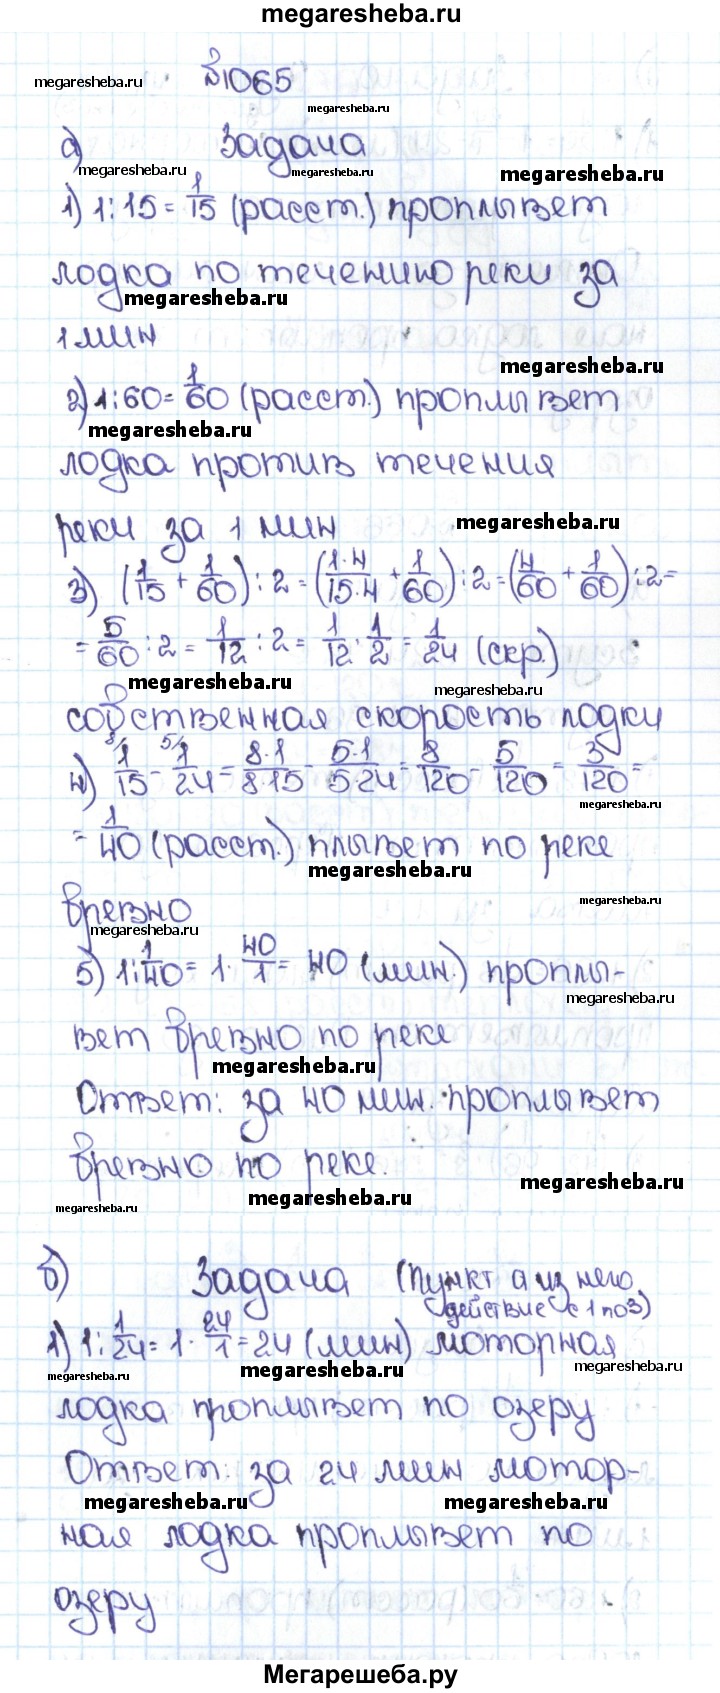 megaresheba.ru
№1065
megaresheba.ru
megaresheba.ru
а) Задача
megaresheba.ru
megaresheba.ru
megaresheba.ru
1) 1:15= 1/15 (расст.) проплывет
лодка по течению реки за
megaresheba.ru
1 мин
megaresheba.ru
2) 1:60= 1/60 (расст.) проплывет
megaresheba.ru
лодка против течения
реки за 1 мин
megaresheba.ru
3) (1/15 + 1/60) : 2 = (1·4/15·4 + 1/60) : 2 = (4/60 + 1/60) : 2 =
= 5/60 : 2 = 1/12 : 2 = 1/12 · 1/2 = 1/24 (скр.)
megaresheba.ru
megaresheba.ru
собственная скорость лодки
4) 8/ 1/15 - 5/ 1/24 = 8·1/8·15 - 5·1/5·24 = 8/120 - 5/120 = 3/120 =
megaresheba.ru
= 1/40 (расст.) плывет по реке
megaresheba.ru
megaresheba.ru
бревно
megaresheba.ru
5) 1: 1/40 = 1 · 40/1 = 40 (мин.) проплы-
megaresheba.ru
вет бревно по реке
megaresheba.ru
Ответ: за 40 мин. проплывет
бревно по реке.
megaresheba.ru
megaresheba.ru
megaresheba.ru
б) Задача (пункт а из него
действие с 1 по 3)
1) 1: 1/24 = 1 · 24/1 = 24 (мин) моторная
megaresheba.ru
megaresheba.ru
megaresheba.ru
лодка проплывет по озеру
Ответ: за 24 мин мотор-
megaresheba.ru
megaresheba.ru
ная лодка проплывет по
озеру
Мегарешеба.ру